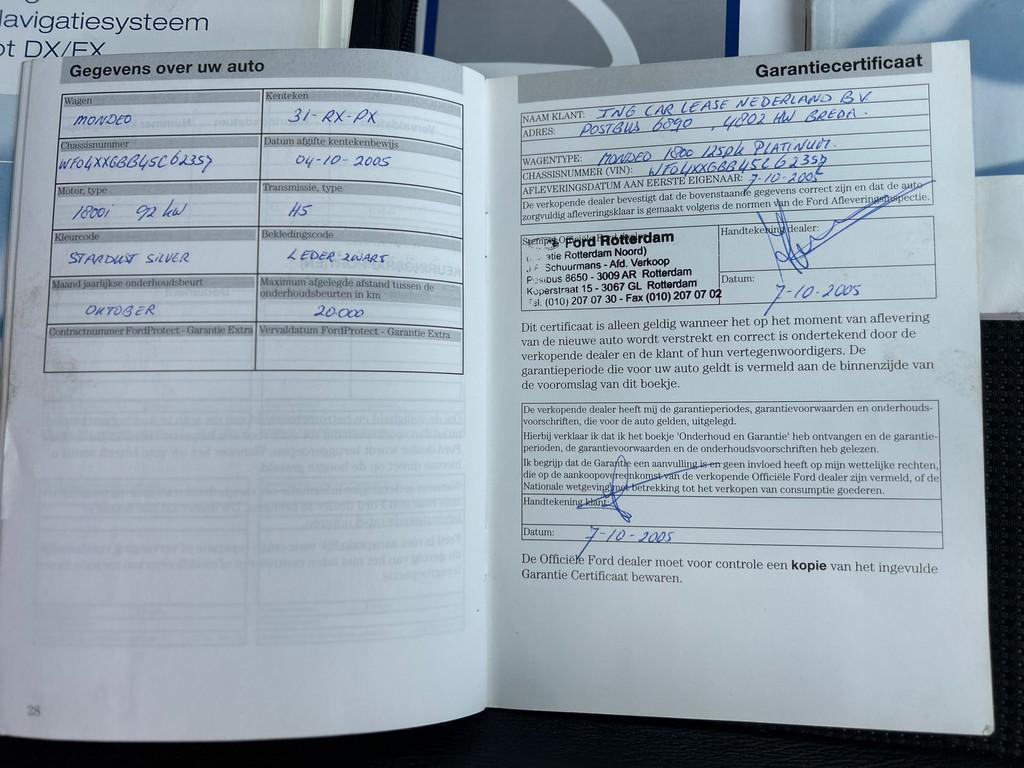 Navigatiesysteem
ot DX/FX
Gegevens over uw auto
Wagen
MONDEO
Kenteken
31-RX-PX
Chassisnummer
WF04XXGBB45C62357
Datum afgifte kentekenbewijs
04-10-2005
Motor, type
1800i 92 kW
Transmissie, type
H5
Kleurcode
STARDUST SILVER
Bekledingscode
LEDER ZWART
Maand jaarlijkse onderhoudsbeurt
OKTOBER
Maximum afgelegde afstand tussen de
onderhoudsbeurten in km
20.000
Contractnummer FordProtect - Garantie Extra
Vervaldatum FordProtect - Garantie Extra
28
Garantiecertificaat
NAAM KLANT: ING CAR LEASE NEDERLAND B.V.
ADRES: POSTBUS 6890, 4802 HW BREDA.
WAGENTYPE: MONDEO 1800 125pk PLATINUM.
CHASSISNUMMER (VIN): WF04XXGBB45C62357
AFLEVERINGSDATUM AAN EERSTE EIGENAAR: 7-10-2005
De verkopende dealer bevestigt dat de bovenstaande gegevens correct zijn en dat de auto
zorgvuldig afleveringsklaar is gemaakt volgens de normen van de Ford Afleveringsinspectie.
Ford Rotterdam
atie Rotterdam Noord)
Schuurmans - Afd. Verkoop
Postbus 8650 - 3009 AR Rotterdam
Koperstraat 15 - 3067 GL Rotterdam
Tel. (010) 207 07 30 - Fax (010) 207 07 02
Handtekening dealer:
Datum:
7-10-2005
Dit certificaat is alleen geldig wanneer het op het moment van aflevering
van de nieuwe auto wordt verstrekt en correct is ondertekend door de
verkopende dealer en de klant of hun vertegenwoordigers. De
garantieperiode die voor uw auto geldt is vermeld aan de binnenzijde van
de vooromslag van dit boekje.
De verkopende dealer heeft mij de garantieperiodes, garantievoorwaarden en onderhouds-
voorschriften, die voor de auto gelden, uitgelegd.
Hierbij verklaar ik dat ik het boekje 'Onderhoud en Garantie' heb ontvangen en de garantie-
perioden, de garantievoorwaarden en de onderhoudsvoorschriften heb gelezen.
Ik begrijp dat de Garantie een aanvulling is en geen invloed heeft op mijn wettelijke rechten,
die op de aankoopovereenkomst van de verkopende Officiële Ford dealer zijn vermeld, of de
Nationale wetgeving met betrekking tot het verkopen van consumptie goederen.
Handtekening klant:
Datum: 7-10-2005
De Officiële Ford dealer moet voor controle een kopie van het ingevulde
Garantie Certificaat bewaren.